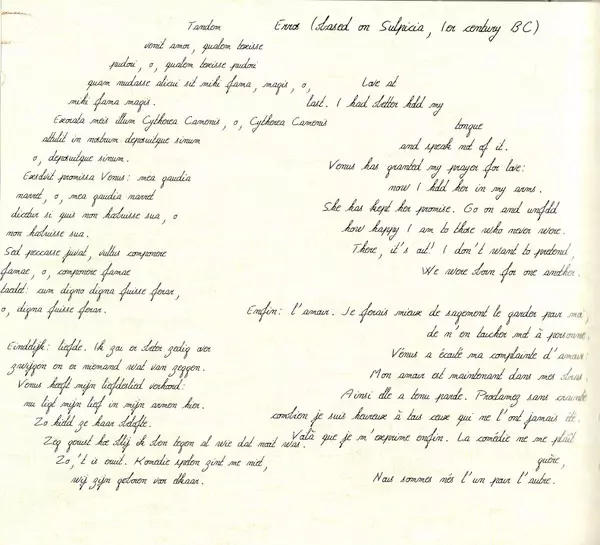 Tandem
venit amor, qualem texisse
pudori, o, qualem texisse pudori
quam nudasse alicui sit mihi fama, magis, o,
mihi fama magis.
Exorata meis illum Cytherea Camenis, o, Cytherea Camenis
attulit in nostrum deposuitque sinum
o, deposuitque sinum.
Exsolvit promissa Venus: mea gaudia
narret, o, mea gaudia narret
dicetur si quis non habuisse sua, o
non habuisse sua.
Sed peccasse juvat, vultus componere
famae, o, componere famae
taedet: cum digno digna fuisse ferar,
o, digna fuisse ferar.
Eindelijk: liefde. Ik zou er beter zedig over
zwijgen en er niemand wat van zeggen.
Venus heeft mijn liefdeslied verhoord:
nu ligt mijn lief in mijn armen hier.
Zo hield ze haar belofte.
Zeg gerust hoe blij ik ben tegen al wie dat nooit was.
Zo, 't is eruit. Komedie spelen zint me niet,
wij zijn geboren voor elkaar.
Error (based on Sulpicia, 1er century BC)
Love at
last. I had better hold my
tongue
and speak not of it.
Venus has granted my prayer for love:
now I hold her in my arms.
She has kept her promise. Go on and unfold
how happy I am to those who never were.
There, it's out! I don't want to pretend,
We were born for one another.
Enfin: l'amour. Je ferais mieux de sagement le garder pour moi,
de n'en toucher mot à personne.
Vénus a écouté ma complainte d'amour:
Mon amour est maintenant dans mes bras.
Ainsi elle a tenu parole. Proclamez sans crainte
combien je suis heureux à tous ceux qui ne l'ont jamais été.
Voilà que je m'exprime enfin. La comédie ne me plaît
guère,
Nous sommes nés l'un pour l'autre.